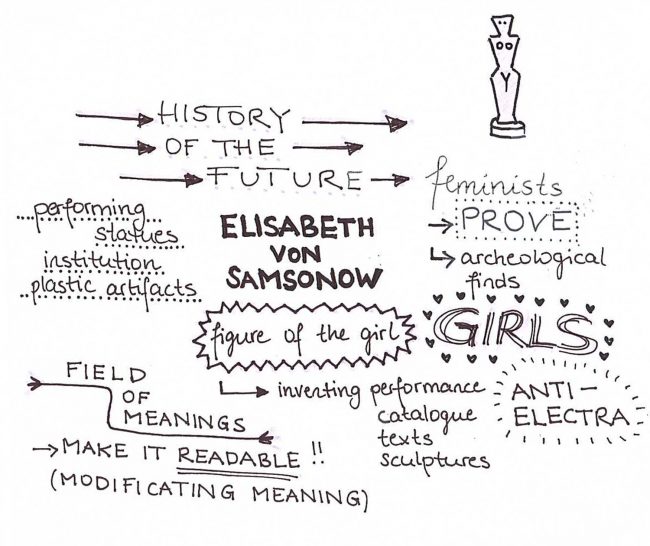 HISTORY
OF THE
FUTURE
feminists
PROVE
archeological
finds
performing
statues
institution
plastic artifacts
ELISABETH
VON
SAMSONOW
figure of the girl
GIRLS
inventing performance
catalogue
texts
sculptures
ANTI-
ELECTRA
FIELD
OF
MEANINGS
MAKE IT READABLE !!
(MODIFICATING MEANING)